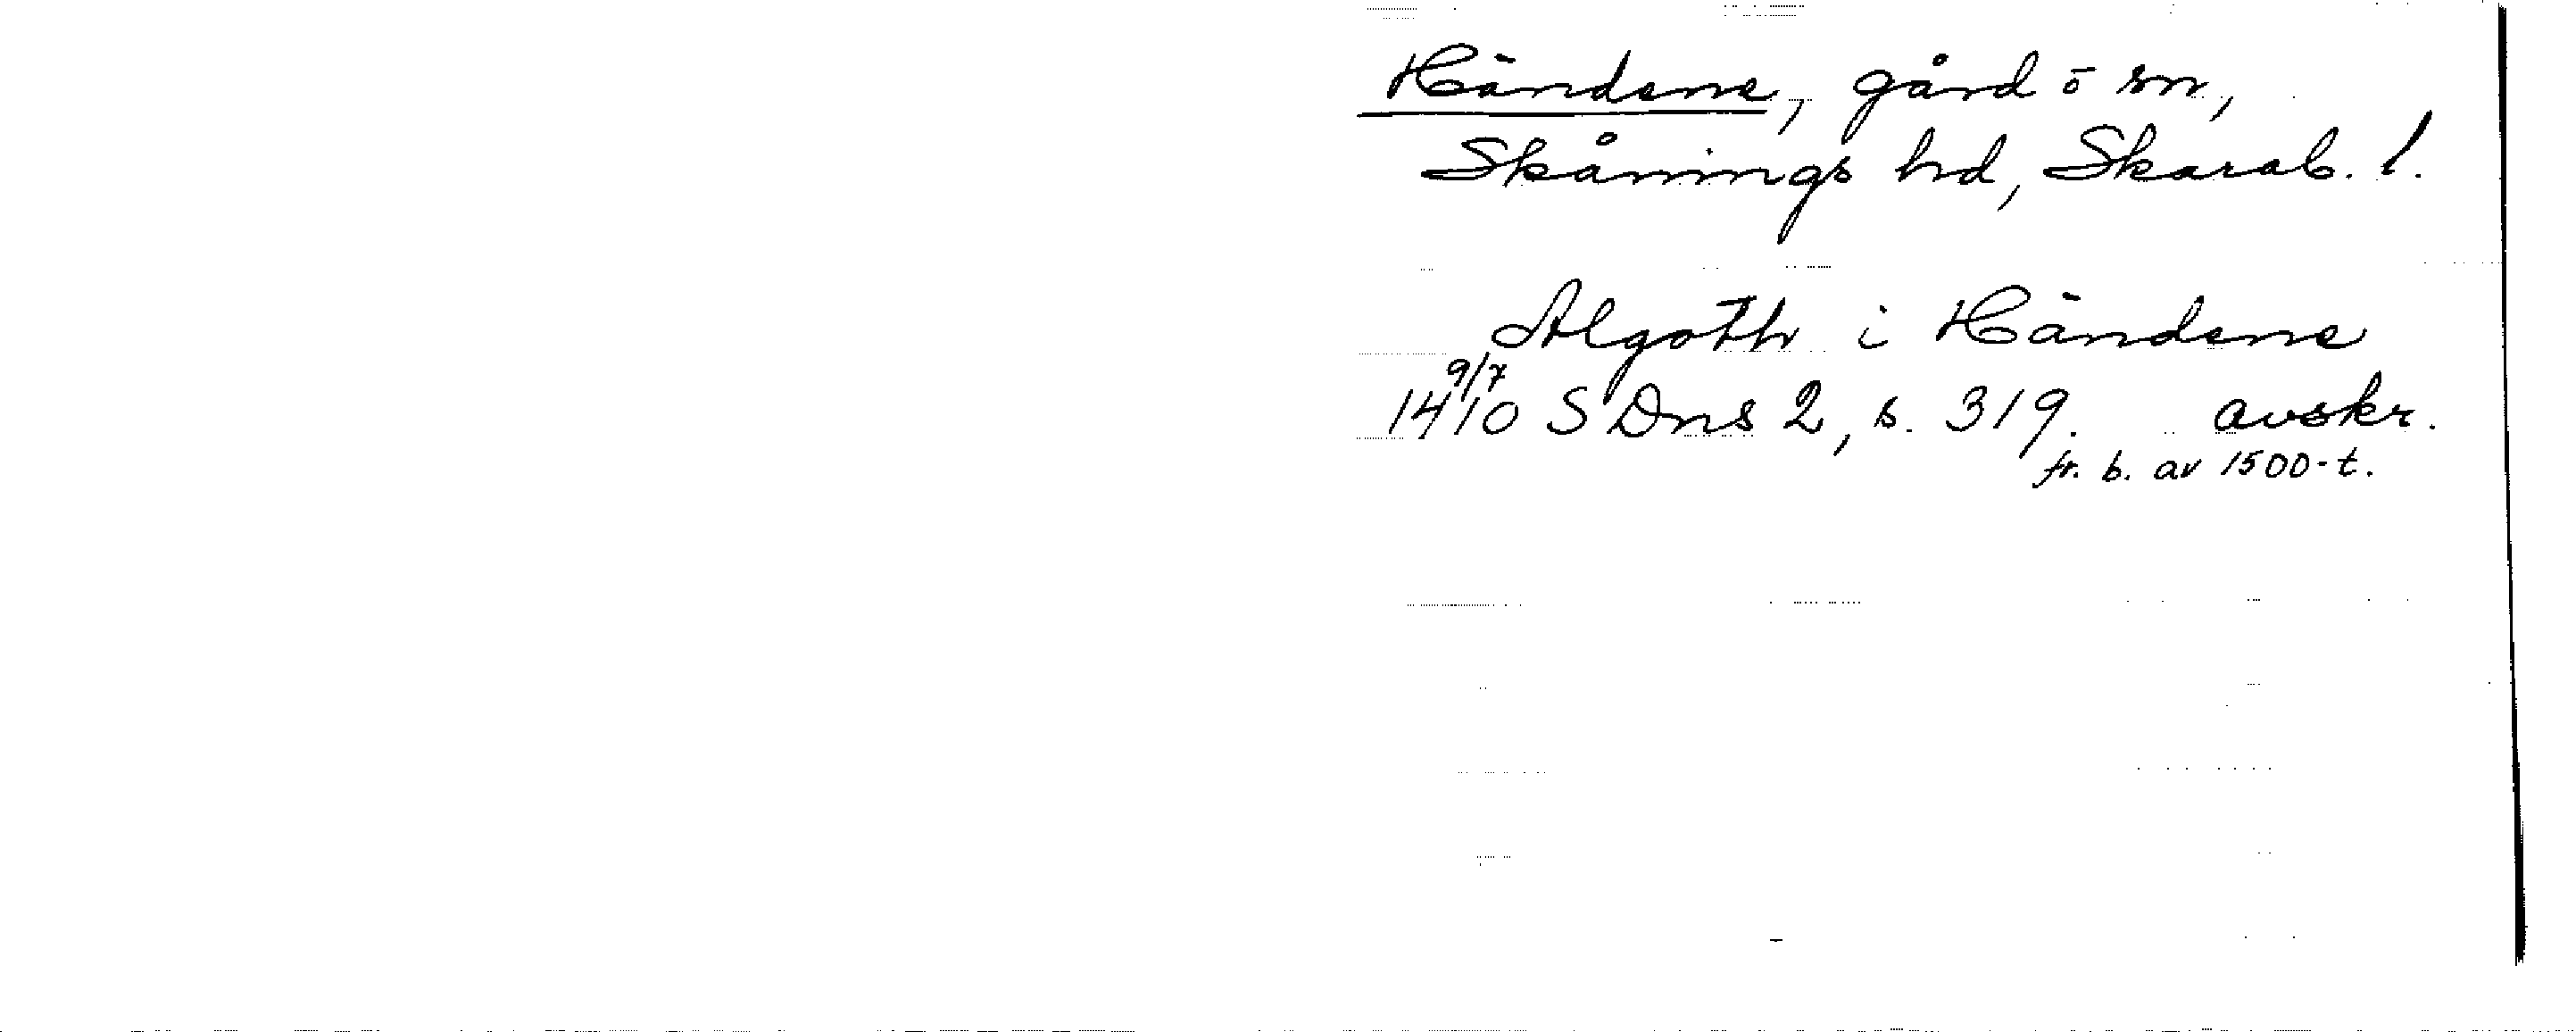 Händene, gård o sn,
Skånings hd, Skarab. l.
Algoth i Händene
9/7
1410 SDns 2, s. 319. avskr.
fr. b. av 1500-t.